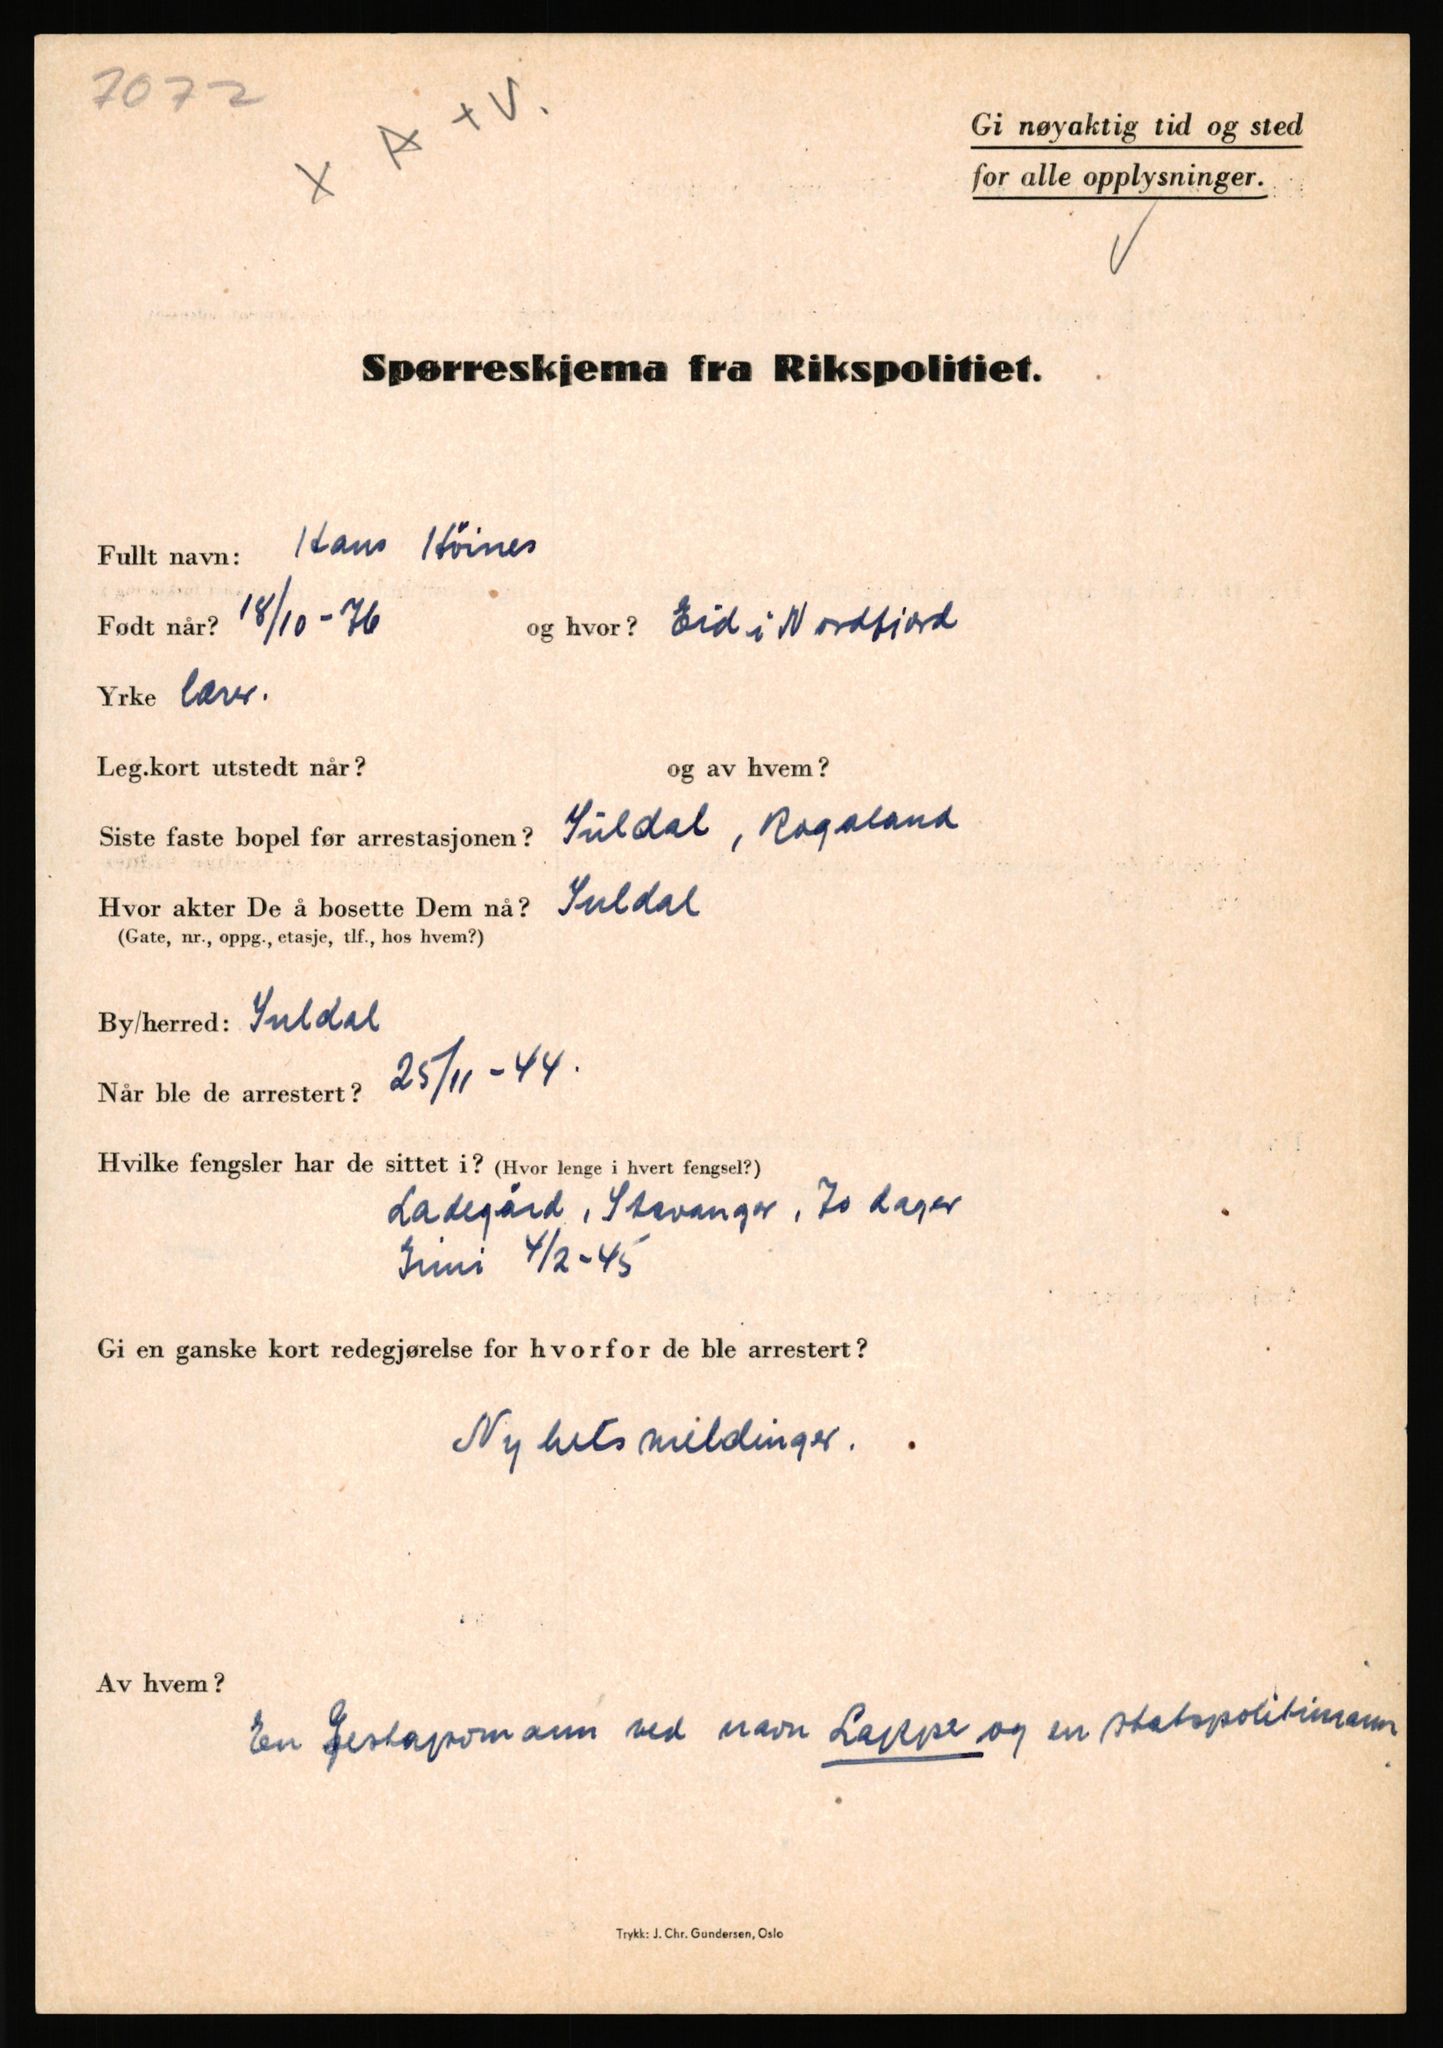 7072
X A + V.
Gi nøyaktig tid og sted
for alle opplysninger.
V
Spørreskjema fra Rikspolitiet.
Fullt navn: Hans Höines
Født når? 18/10-76 og hvor? Eid i Nordfjord
Yrke lærer.
Leg.kort utstedt når? og av hvem?
Siste faste bopel før arrestasjonen? Suldal, Rogaland
Hvor akter De å bosette Dem nå? Suldal
(Gate, nr., oppg., etasje, tlf., hos hvem?)
By/herred: Suldal
Når ble de arrestert? 25/11-44.
Hvilke fengsler har de sittet i? (Hvor lenge i hvert fengsel?)
Ladegård, Stavanger, 70 dager
Grini 4/2-45
Gi en ganske kort redegjørelse for hvorfor de ble arrestert?
Nyhetsmeldinger.
Av hvem?
En Gestapomann ved navn Lappe og en statspolitimann
Trykk: J. Chr. Gundersen, Oslo